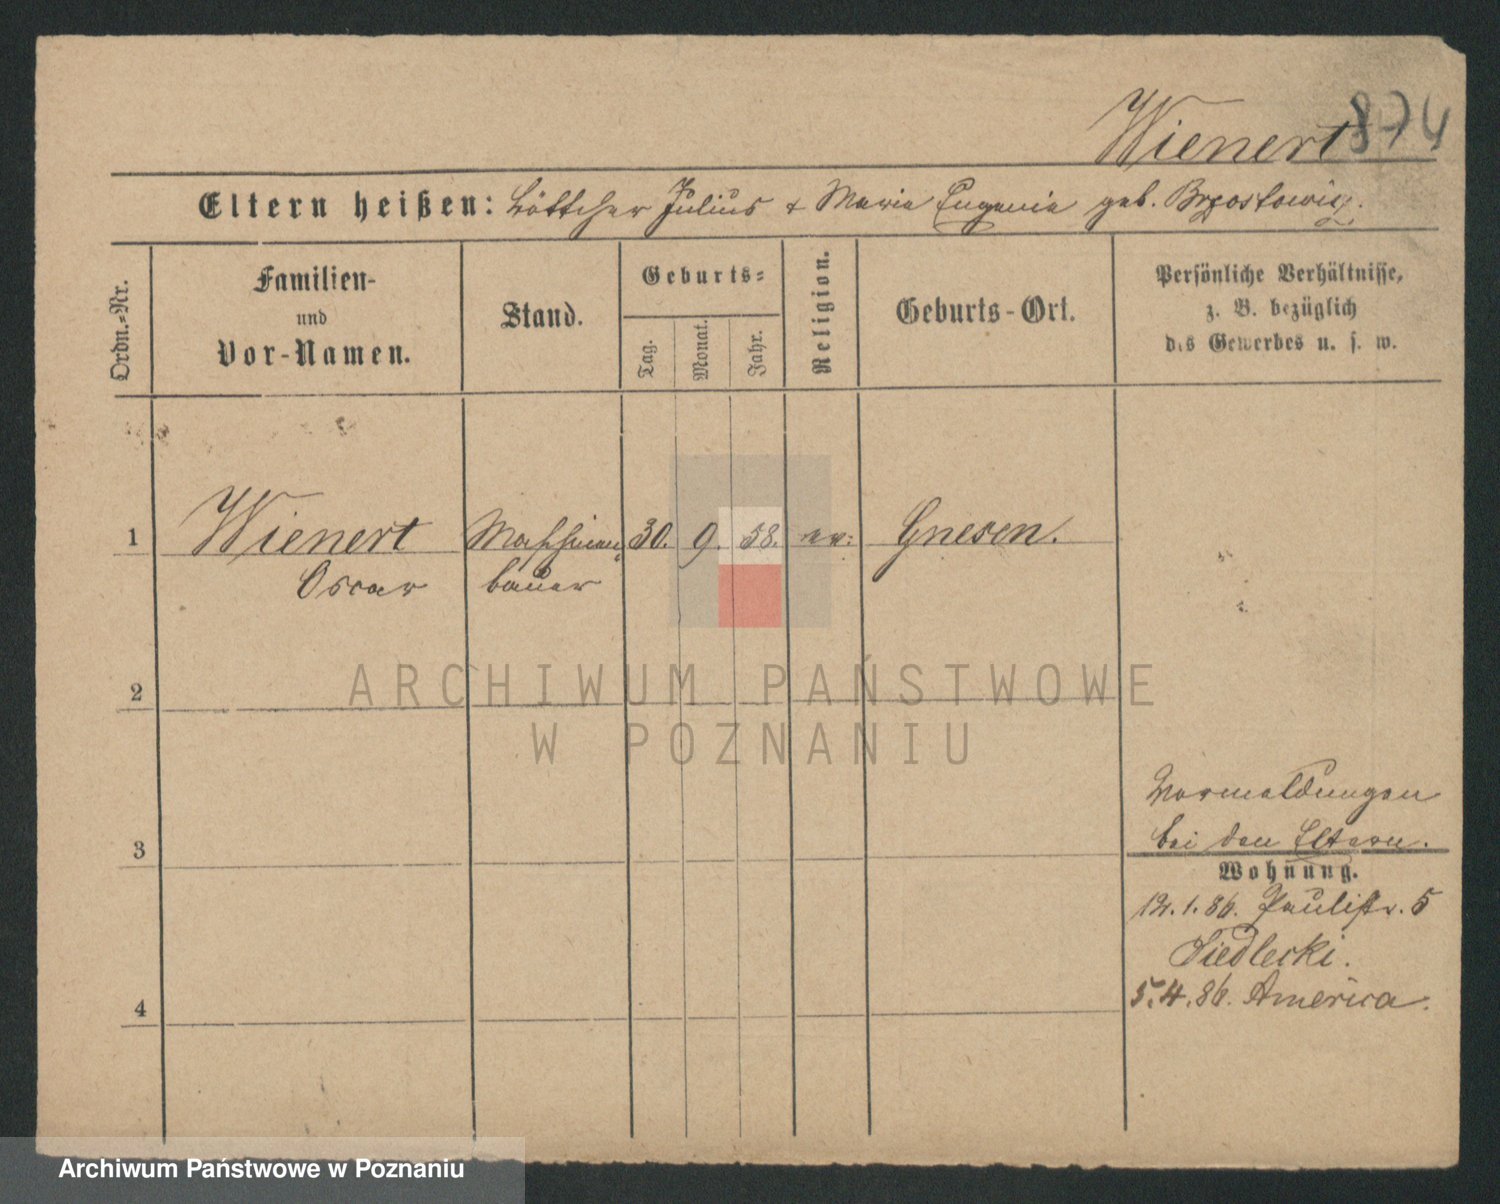 Wienert 874
Eltern heißen: Böttcher Julius & Marie Eugenie geb. Brzostowicz.
Ordn.-Nr.
Familien-
und
Vor-Namen.
Stand.
Geburts-
Tag.
Monat.
Jahr.
Religion.
Geburts-Ort.
Persönliche Verhältnisse,
z. B. bezüglich
des Gewerbes u. s. w.
1 Wienert Maschinen 30. 9. 58. ev: Gnesen.
Oscar bauer
2
3
4
Vormeldungen
bei den Eltern.
Wohnung.
12.1.86. Paulistr. 5
Siedlecki.
5.4.86. America.
ARCHIWUM PAŃSTWOWE
W POZNANIU
Archiwum Państwowe w Poznaniu